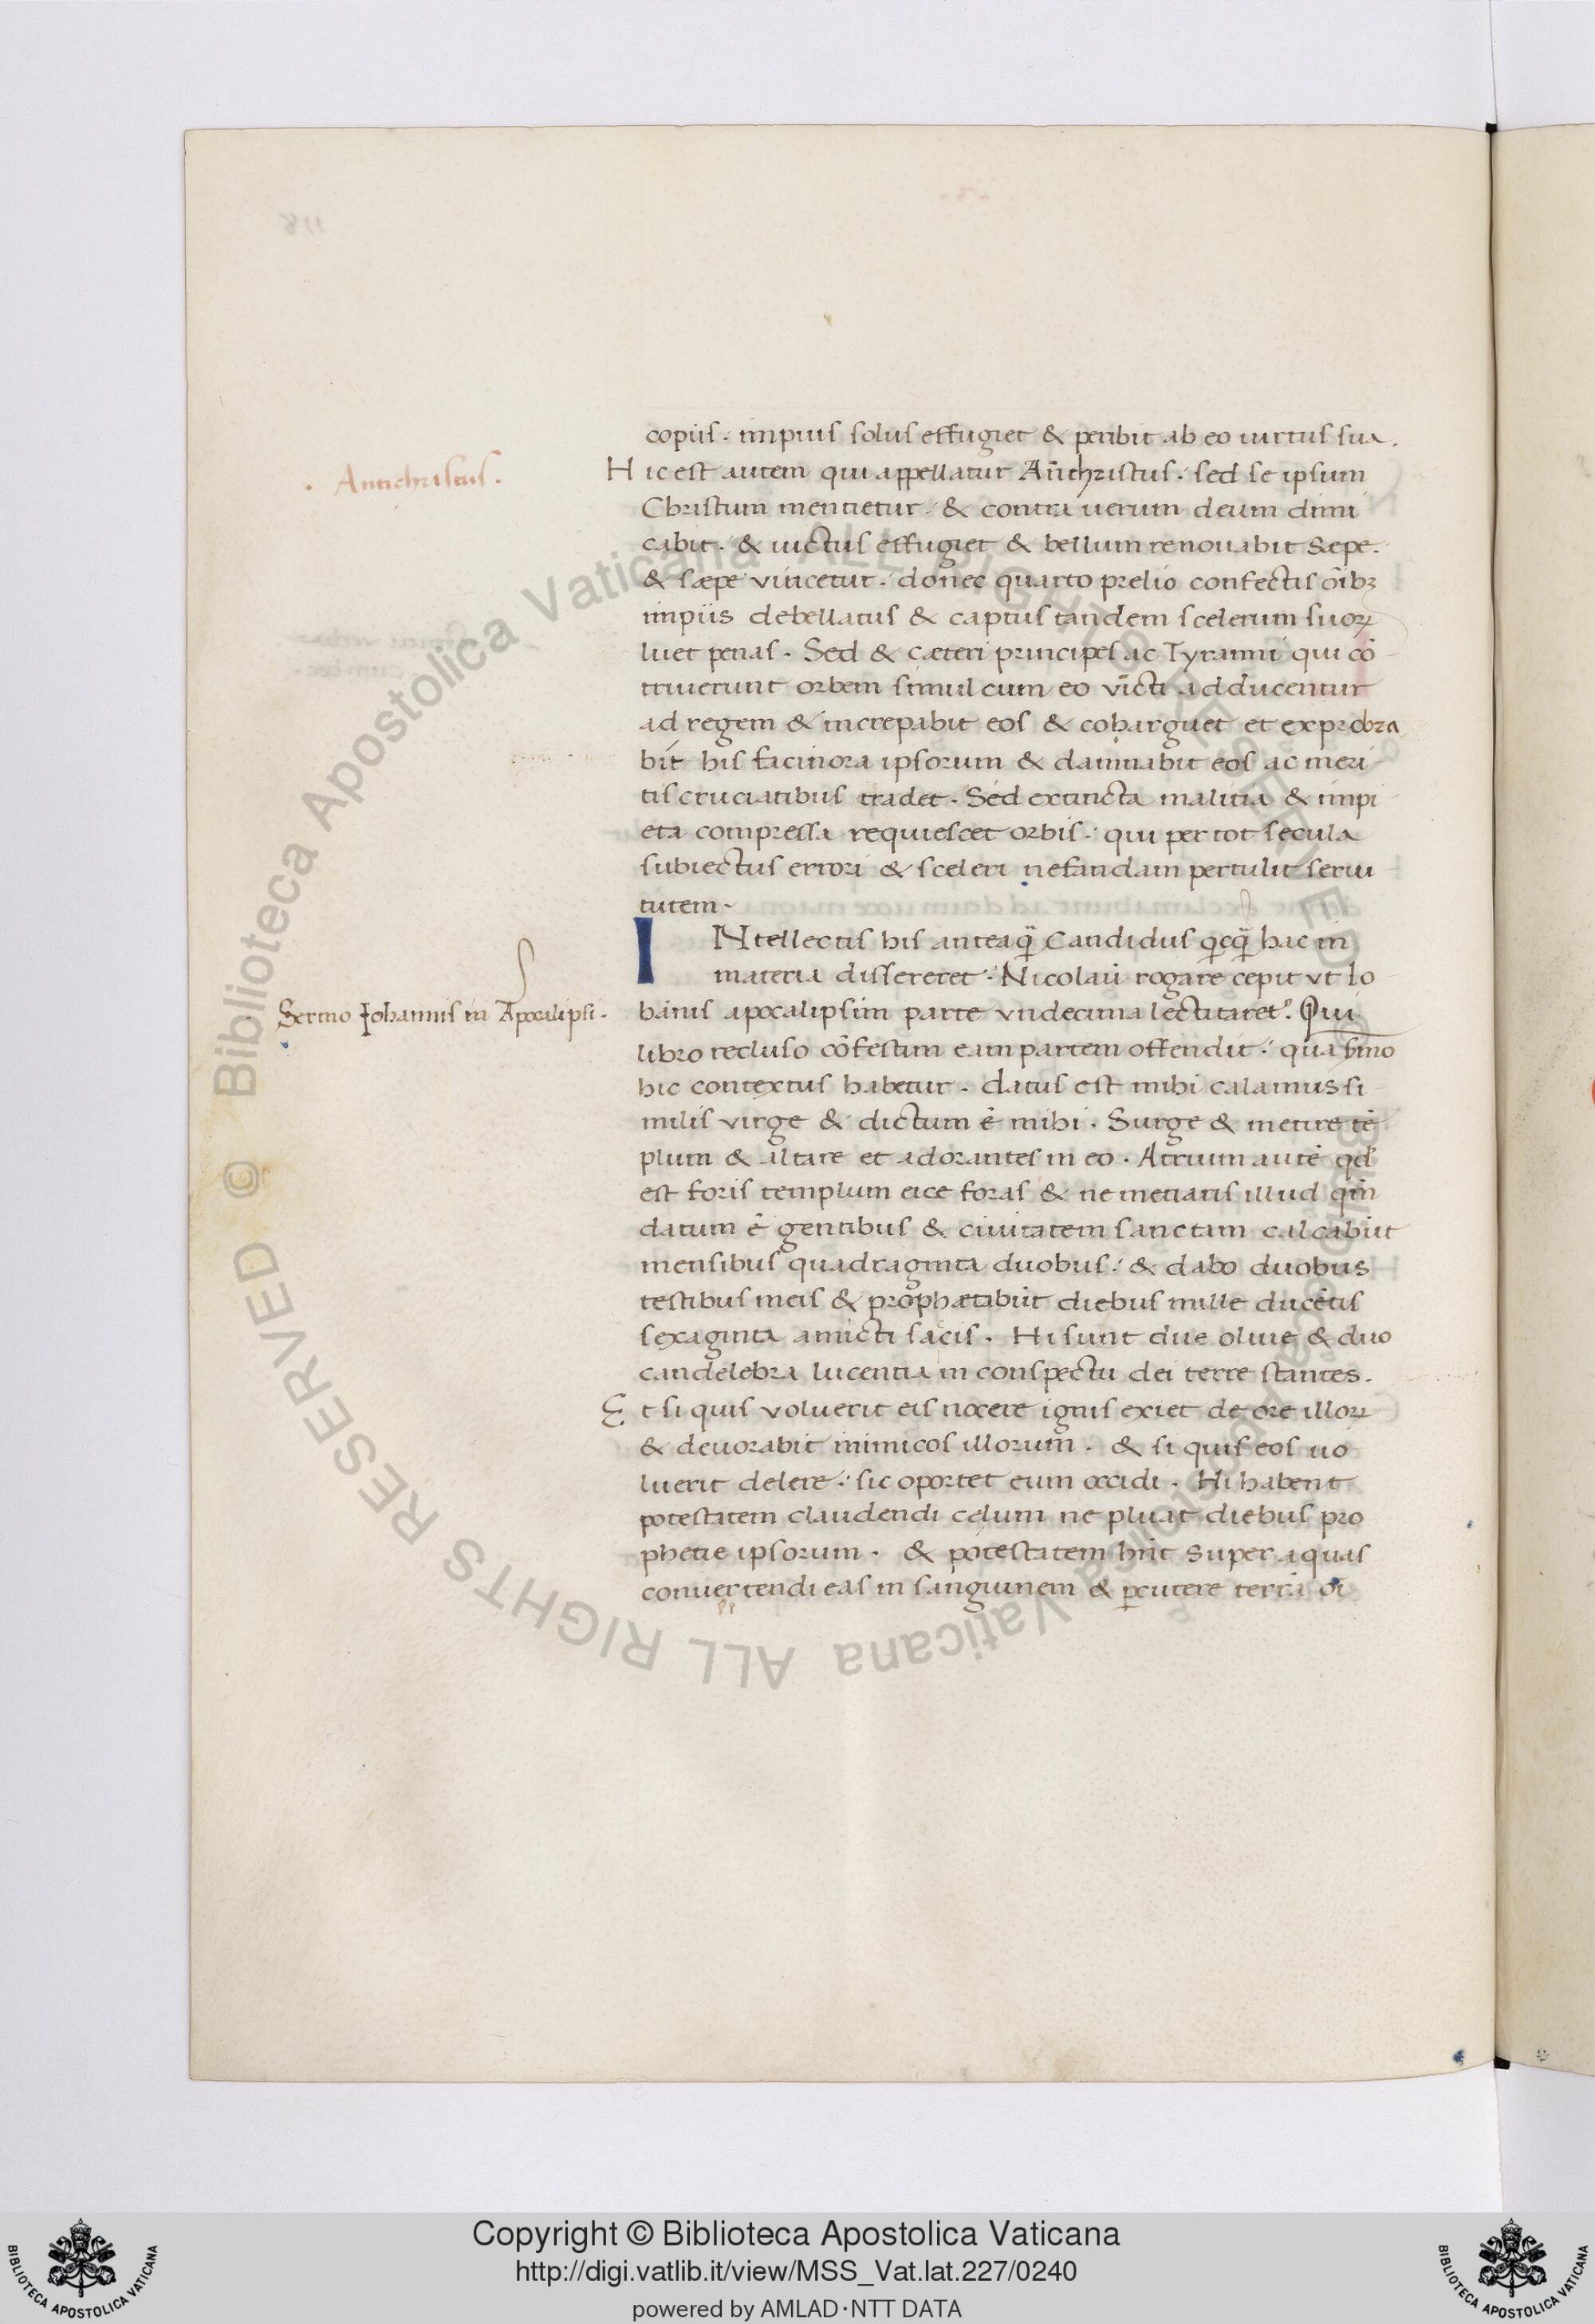 copiis. impius solus effugiet & peribit ab eo uirtus sua.
. Antichristus.
Hic est autem qui appellatur Añchristus. sed se ipsum
Christum mentietur. & contra uerum deum dimi
cabit. & uictus effugiet & bellum renouabit sæpe.
& sæpe vincetur. donec quarto prelio confectis oĩbꝫ
impiis debellatus & captus tandem scelerum suoꝝ
luet penas. Sed & cæteri principes ac Tyranni qui cõ
triuerunt orbem simul cum eo vĩcti adducentur
ad regem & increpabit eos & coharguet et exprobra
bit his facinora ipsorum & damnabit eos ac meri
tis cruciatibus tradet. Sed extincta malitia & impi
eta compressa requiescet orbis. qui per tot secula
subiectus errori & sceleri nefandam pertulit serui
tutem.
INtellectis his anteaq̃ Candidus qͥcq̃ hac in
materia dissereret. Nicolaũ rogare cepit vt Io
Sermo Iohannis in Apocalipsi.
hãnis apocalipsim parte vndecima lectitaret. Qui
libro recluso cõfestim eam partem offendit. qua s̃mo
hic contextus habetur. datus est mihi calamus si
milis virge & dictum ẽ mihi. Surge & metire tẽ
plum & altare et adorantes in eo. Atrium autẽ qd̃
est foris templum eice foras & ne metiaris illud qm̃
datum ẽ gentibus & ciuitatem sanctam calcabũt
mensibus quadraginta duobus. & dabo duobus
testibus meis & prophætabũt diebus mille ducẽtis
sexaginta amicti sacis. Hi sunt due oliue & duo
candelebra lucentia in conspectu dei terre stantes.
Et si quis voluerit eis nocere ignis exiet de ore illoꝝ
& deuorabit inimicos illorum. & si quis eos uo
luerit delere. sic oportet eum occidi. Hi habent
potestatem claudendi celum ne pluat diebus pro
phetie ipsorum. & potestatem hñt super aquas
conuertendi eas in sanguinem & ꝑcutere terrã oĩ
Copyright © Biblioteca Apostolica Vaticana
http://digi.vatlib.it/view/MSS_Vat.lat.227/0240
powered by AMLAD·NTT DATA
BIBLIOTECA APOSTOLICA VATICANA
BIBLIOTECA APOSTOLICA VATICANA
© Biblioteca Apostolica Vaticana ALL RIGHTS RESERVED
© Biblioteca Apostolica Vaticana ALL RIGHTS RESERVED